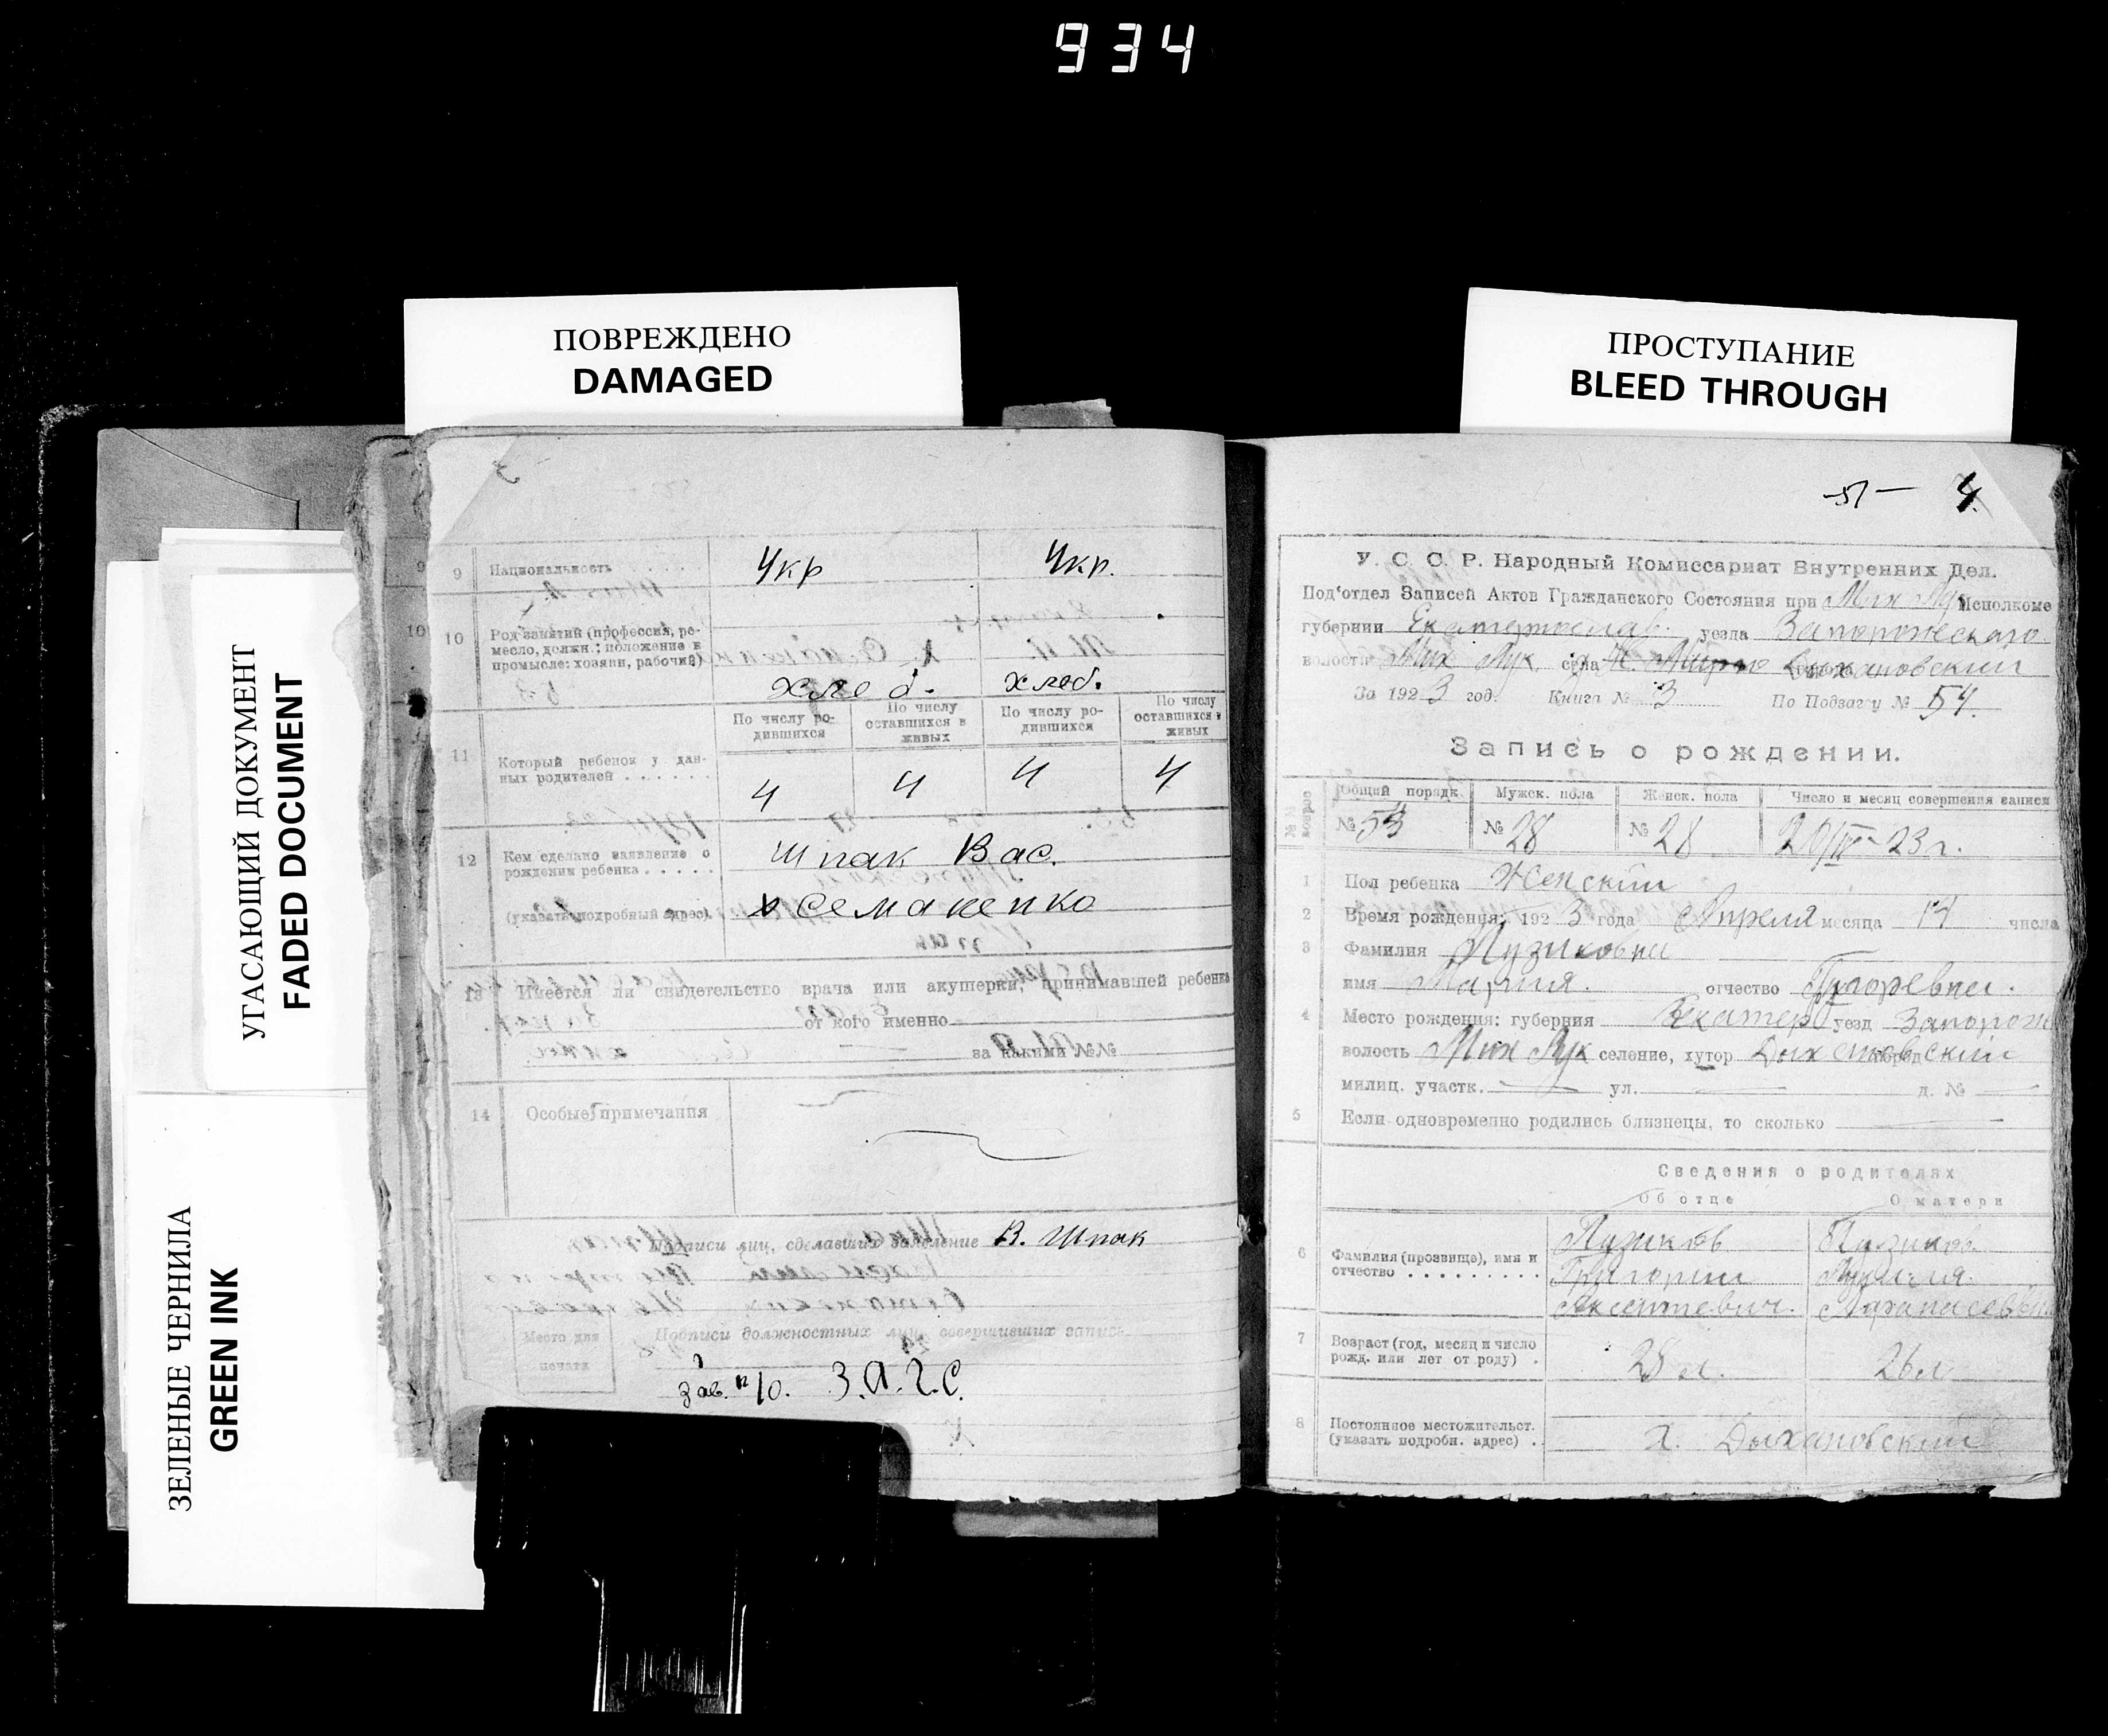 934
ПОВРЕЖДЕНО
DAMAGED
ПРОСТУПАНИЕ
BLEED THROUGH
УГАСАЮЩИЙ ДОКУМЕНТ
FADED DOCUMENT
ЗЕЛЕНЫЕ ЧЕРНИЛА
GREEN INK
9 Национальность Укр Укр.
10 Род занятий (профессия, ре-
месло, должн.; положение в
промысле: хозяин, рабочий)
хлеб. хлеб.
По числу ро-дившихся По числу оставшихся в живых По числу ро-дившихся По числу оставшихся в живых
11 Который ребенок у дан-
ных родителей . . . . . . 4 4 4 4
12 Кем сделано заявление о
рождении ребенка . . . . . Шпак Вас.
(указать подробный адрес). х Семаненко
13 Имеется ли свидетельство врача или акушерки, принимавшей ребенка
от кого именно
за какими №№
14 Особые примечания
Подписи лиц, сделавших заявление В. Шпак
Место для печати
Подписи должностных лиц, совершивших запись
Зав. З.А.Г.С.
51 — 4
У. С. С. Р. Народный Комиссариат Внутренних Дел.
Под'отдел Записей Актов Гражданского Состояния при Мих Лук Исполкоме
губернии Екатеринослав. уезда Запорожскаго
волости Мих Лук. села
За 1923 год. Книга № 3 По Подзагсу № 54.
Запись о рождении.
Общий порядк. Мужск. пола Женск. пола Число и месяц совершения записи
№ 53 № 28 № 28 20/IV-23 г.
1 Пол ребенка Женский
2 Время рождения: 1923 года Апреля месяца 14 числа
3 Фамилия Пузикова
имя Мария. отчество Григоревна.
4 Место рождения: губерния Екатер уезд Запорож
волость Мих Лук селение, хутор Дыхановский
милиц. участк. — ул. — д. № —
5 Если одновременно родились близнецы, то сколько —
Сведения о родителях
Об отце О матери
6 Фамилия (прозвище), имя и
отчество . . . . . . . . .
Пузиков Пузиков.
Григорий
7 Возраст (год, месяц и число
рожд. или лет от роду) . 28 л. 26 л
8 Постоянное местожительст.
(указать подробн. адрес) . х. Дыхановский